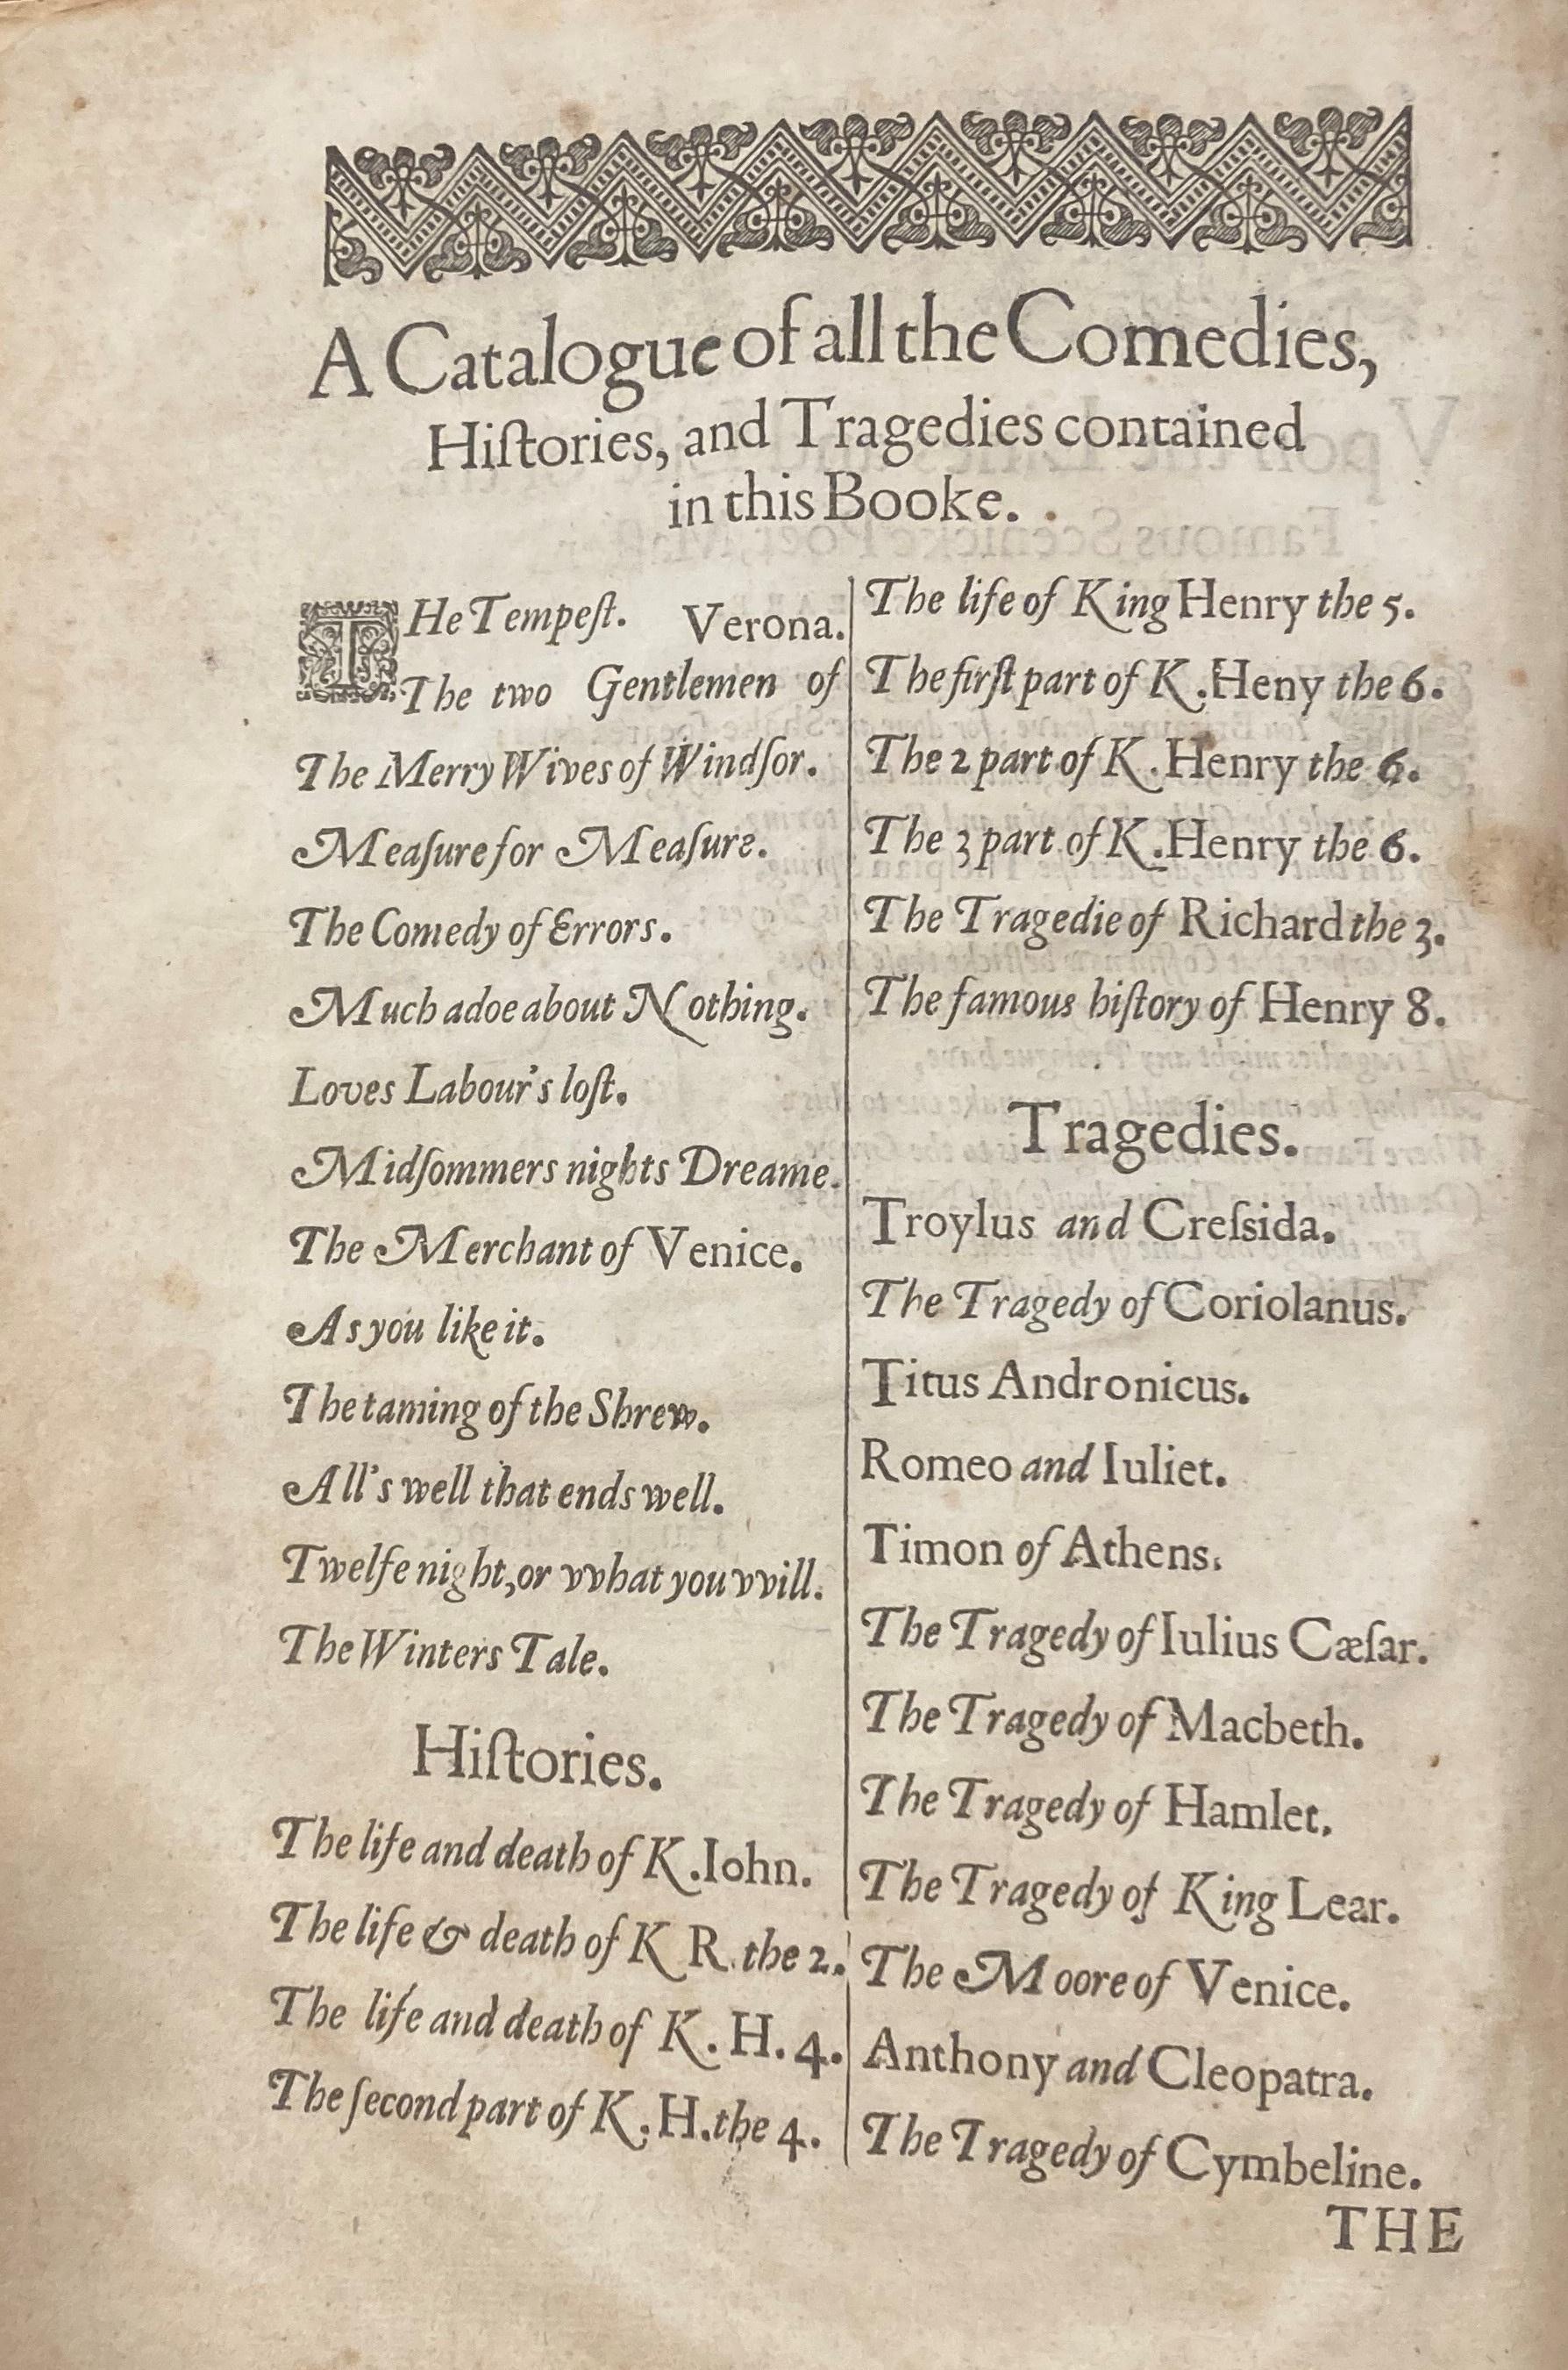 A Catalogue of all the Comedies,
Hiſtories, and Tragedies contained
in this Booke.
THe Tempeſt. Verona.
The two Gentlemen of
The Merry Wives of Windſor.
Meaſure for Meaſure.
The Comedy of Errors.
Much adoe about Nothing.
Loves Labour's loſt.
Midſommers nights Dreame.
The Merchant of Venice.
As you like it.
The taming of the Shrew.
All's well that ends well.
Twelfe night, or vvhat you vvill.
The Winters Tale.
Hiſtories.
The life and death of K. Iohn.
The life & death of K R. the 2.
The life and death of K. H. 4.
The ſecond part of K. H. the 4.
The life of King Henry the 5.
The firſt part of K. Heny the 6.
The 2 part of K. Henry the 6.
The 3 part of K. Henry the 6.
The Tragedie of Richard the 3.
The famous hiſtory of Henry 8.
Tragedies.
Troylus and Creſsida.
The Tragedy of Coriolanus.
Titus Andronicus.
Romeo and Iuliet.
Timon of Athens.
The Tragedy of Iulius Cæſar.
The Tragedy of Macbeth.
The Tragedy of Hamlet.
The Tragedy of King Lear.
The Moore of Venice.
Anthony and Cleopatra.
The Tragedy of Cymbeline.
THE